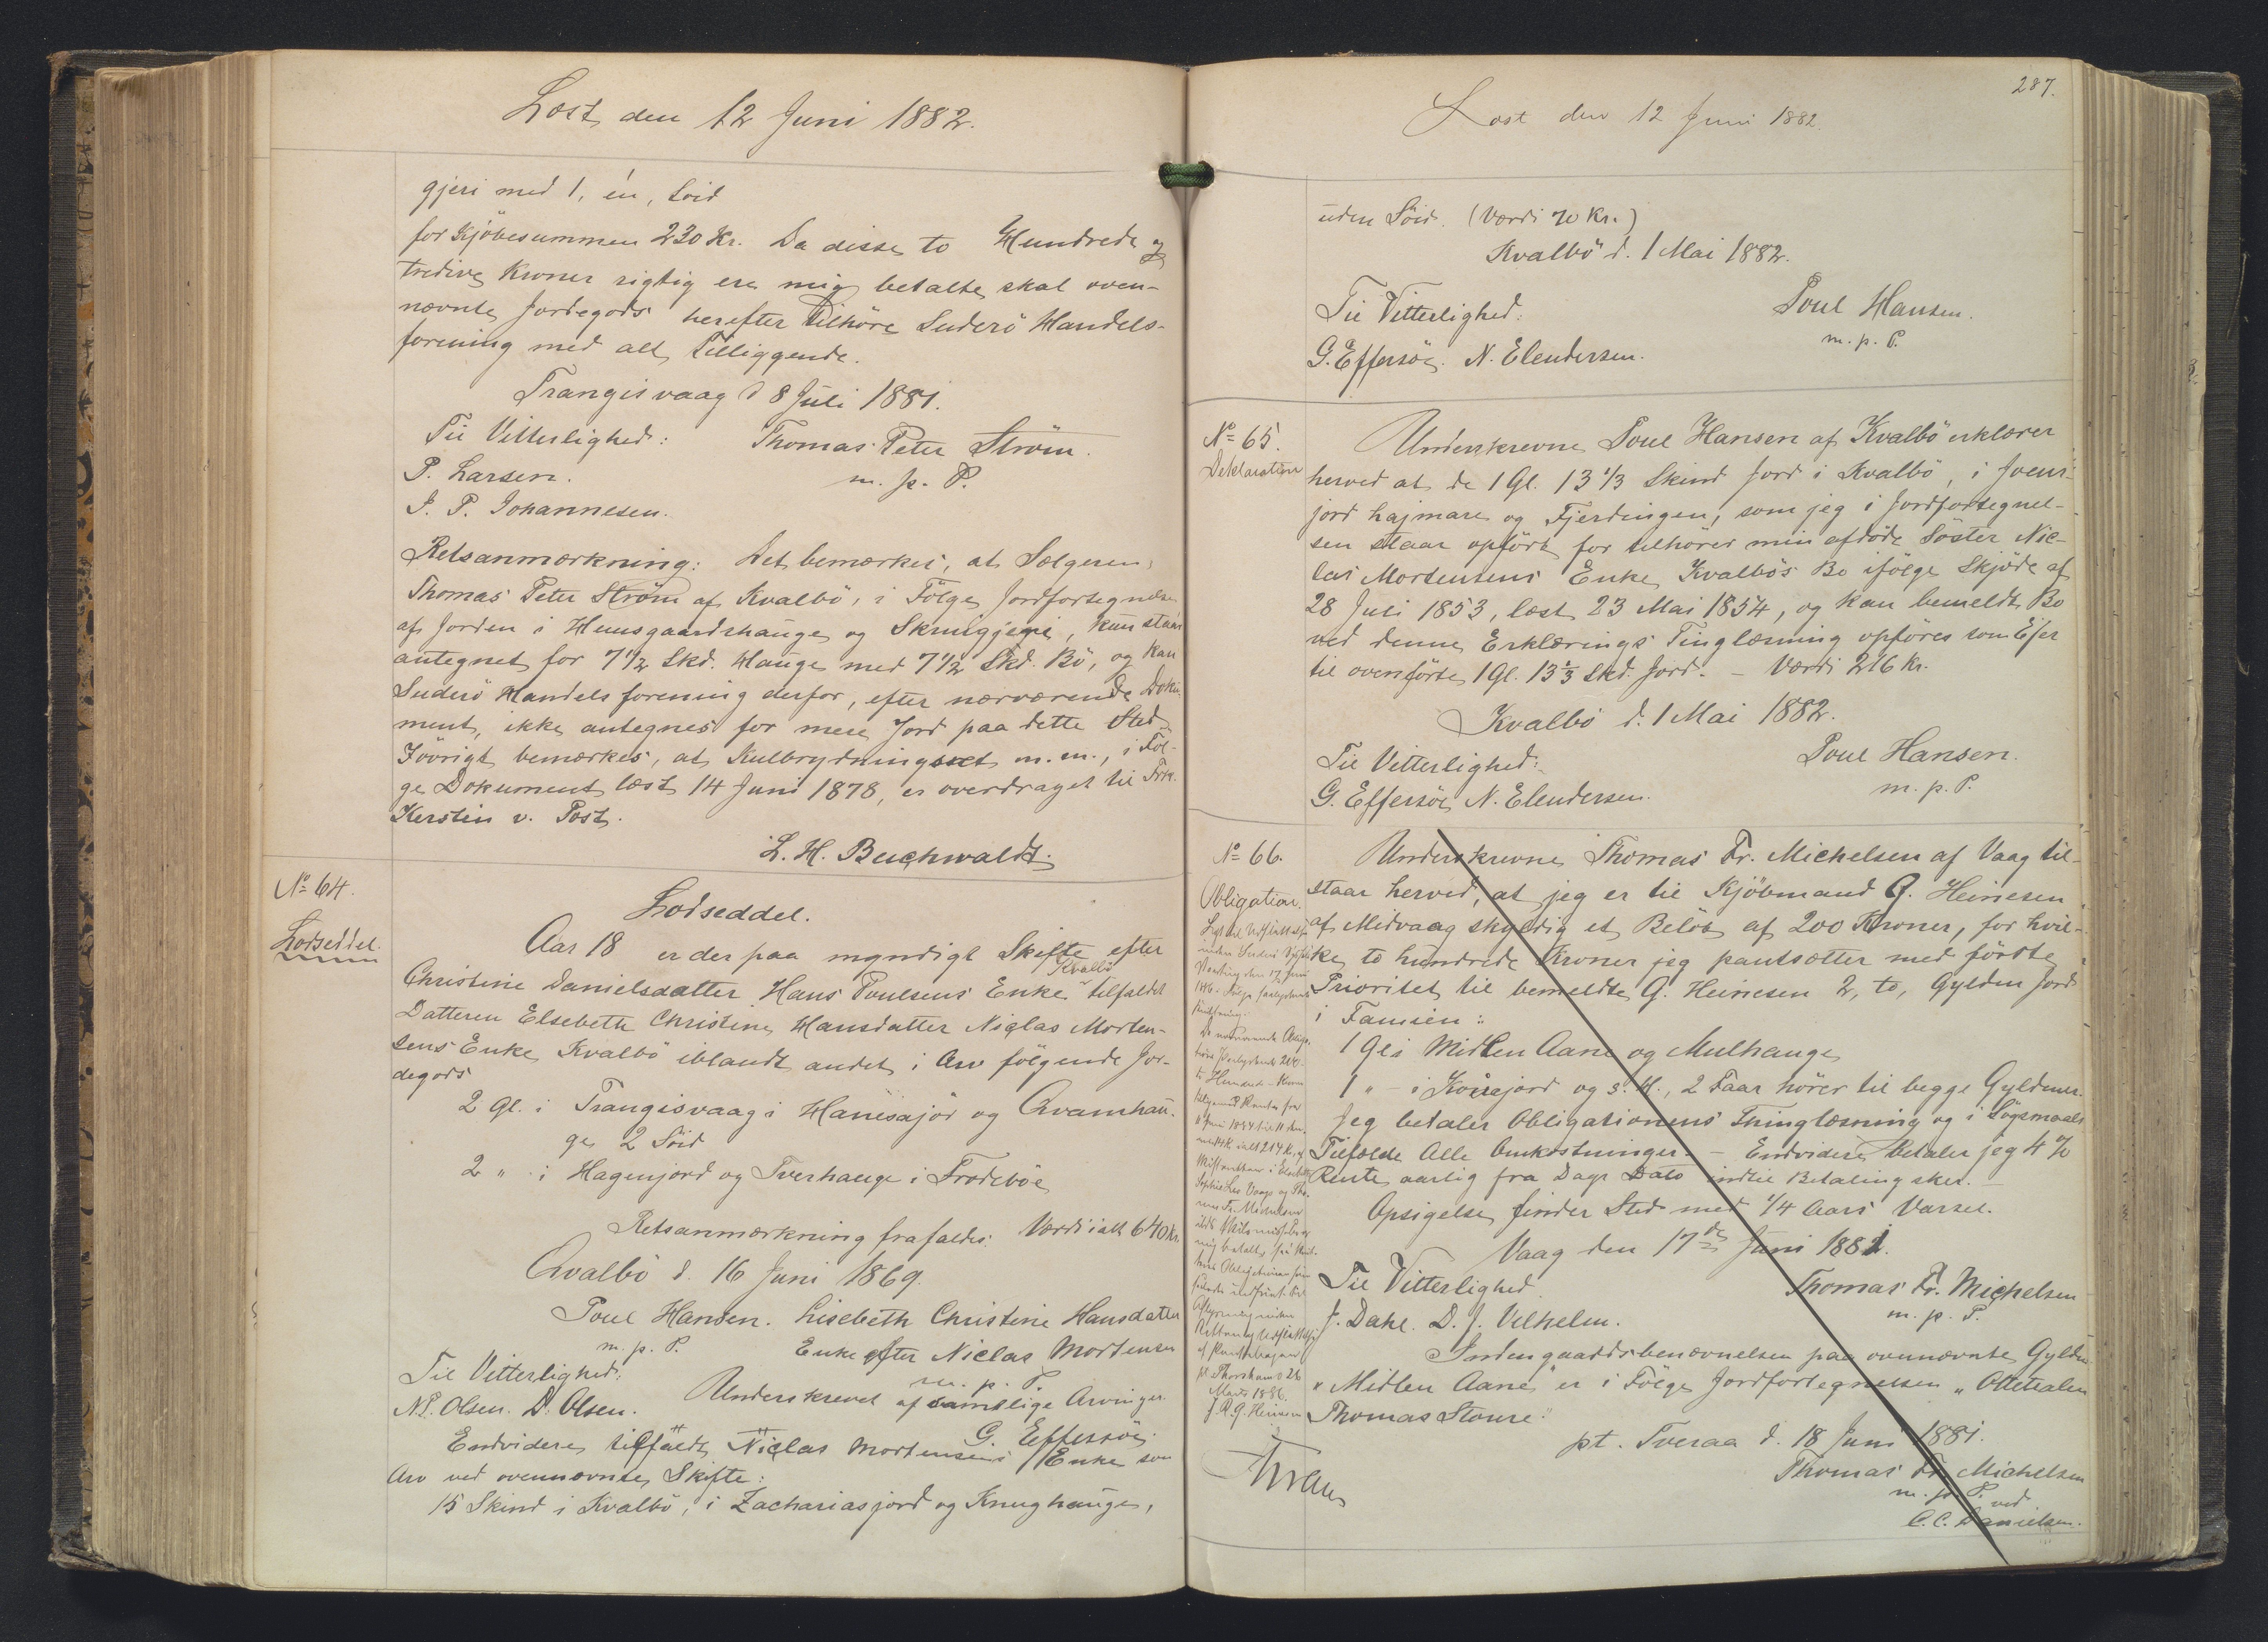 Læst den 12 Juni 1882.
gjeri med 1, én, Søid
for Kjöbesummen 230 Kr. Da disse to Hundrede og
tredive Kroner rigtig ere mig betalte skal oven-
nævnte Jordegods herefter tilhöre Suderö Handels-
forening med alt tilliggende.
Trangisvaag d 8 Juli 1881.
Til Vitterlighed: Thomas Peter Ström.
P. Larsen. m. p. P.
J. P. Johannesen.
Retsanmærkning: Det bemærkes, at Sælgeren,
Thomas Peter Ström af Kvalbö, i Fölge Jordfortegnelse
af Jorden i Huusgaardshauge og Skruggjeri, kun staar
antegnet for 7 1/2 Skd. Hauge med 7 1/2 Skd. Bö, og kan
Suderö Handelsforening derfor, efter nærværende Doku-
ment, ikke antegnes for mere Jord paa dette Sted.
Iövrigt bemærkes, at Kulbrydningsret m. m., i Föl-
ge Dokument læst 14 Juni 1878, er overdraget til Frk.
Kerstin v. Post.
L. H. Buchwaldt.
No 64.
Lodseddel.
Lodseddel.
Aar 18 er der paa myndigt Skifte efter
Christine Danielsdatter Hans Poulsens Enke Kvalbö tilfaldet
Datteren Elsebeth Christine Hansdatter Niclas Morten-
sens Enke Kvalbö iblandt andet i Arv fölgende Jor-
degods
2 Gl. i Trangisvaag i Hanisajör og Qvamhau-
ge 2 Söid
2 " i Hagenjord og Tverhauge i Frodeböe
Retsanmærkning frafaldes. Værdi ialt 640 Kr.
Qvalbö d. 16 Juni 1869.
Poul Hansen. Lisebeth Christine Hansdatter
m. p. P. Enke efter Niclas Mortensen
Til Vitterlighed: m. p. P.
N.P. Olsen. D. Olsen. Underskrevet af samtlige Arvinger
G. Effersöe
Endvidere tilfaldt Niclas Mortensens Enke som
Arv ved ovennævnte Skifte:
15 Skind i Kvalbö, i Zachariasjord og Knughauge,
287.
Læst den 12 Juni 1882.
uden Söid. (Værdi 70 Kr.)
Kvalbö d. 1 Mai 1882.
Til Vitterlighed: Poul Hansen.
G. Effersöe. N. Elendersen. m. p. P.
No 65.
Deklaration
Underskrevne Poul Hansen af Kvalbö erklærer
herved at de 1 Gl. 13 1/3 Skind Jord i Kvalbö, i Joens-
jord hajmare og Fjerdingen, som jeg i Jordfortegnel-
sen staar opfört for tilhörer min afdöde Söster Nic-
las Mortensens Enke Kvalbös Bo ifölge Skjöde af
28 Juli 1853, læst 23 Mai 1854, og kan bemeldte Bo
ved denne Erklærings Tinglæsning opföres som Eier
til ovenförte 1 Gl. 13 1/3 Skd. Jord. - Værdi 216 Kr.
Kvalbö d. 1 Mai 1882.
Til Vitterlighed: Poul Hansen.
G. Effersöe N. Elendersen. m. p. P.
No 66.
Obligation.
Underskrevne Thomas Fr. Michelsen af Vaag til-
staar herved, at jeg er til Kjöbmand G. Heinesen
af Midvaag skyldig et Belöb af 200 Kroner, for hvil-
ke to hundrede Kroner jeg pantsætter med förste
Prioritet til bemeldte G. Heinesen 2, to, Gylden Jord
i Famien:
1 Gl. i Midten Aane og Mulhauge
1 " - i Koirajord og s. H., 2 Faar hörer til begge Gyldener.
Jeg betaler Obligationens Thinglæsning og i Sögsmaals
Tilfælde Alle Omkostninger. - Endvidere betaler jeg 4 %
Rente aarlig fra Dags Dato indtil Betaling sker. -
Opsigelse finder Sted med 1/4 Aars Varsel.
Vaag den 17de Juni 1881.
Til Vitterlighed Thomas Fr. Michelsen
J. Dahl. D. J. Vilhelm. m. p. P.
Indengaardsbenævnelsen paa ovennævnte Gylden
"Midten Aane" er i Fölge Jordfortegnelsen "Ottetialen
Thomas Stoure."
pt. Tveraa d. 18 Juni 1881.
Thomas Fr. Michelsen
m. p. P. ved
C. C. Danielsen.